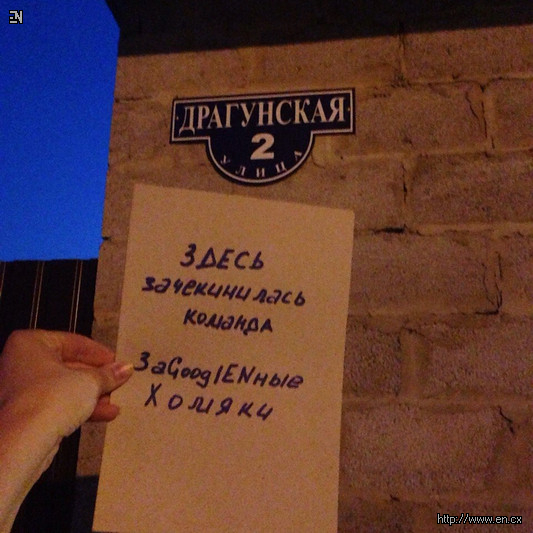 EN
ДРАГУНСКАЯ
2
УЛИЦА
ЗДЕСЬ
зачекинилась
команда
ЗаGooglENные
Хомяки
http://www.en.cx